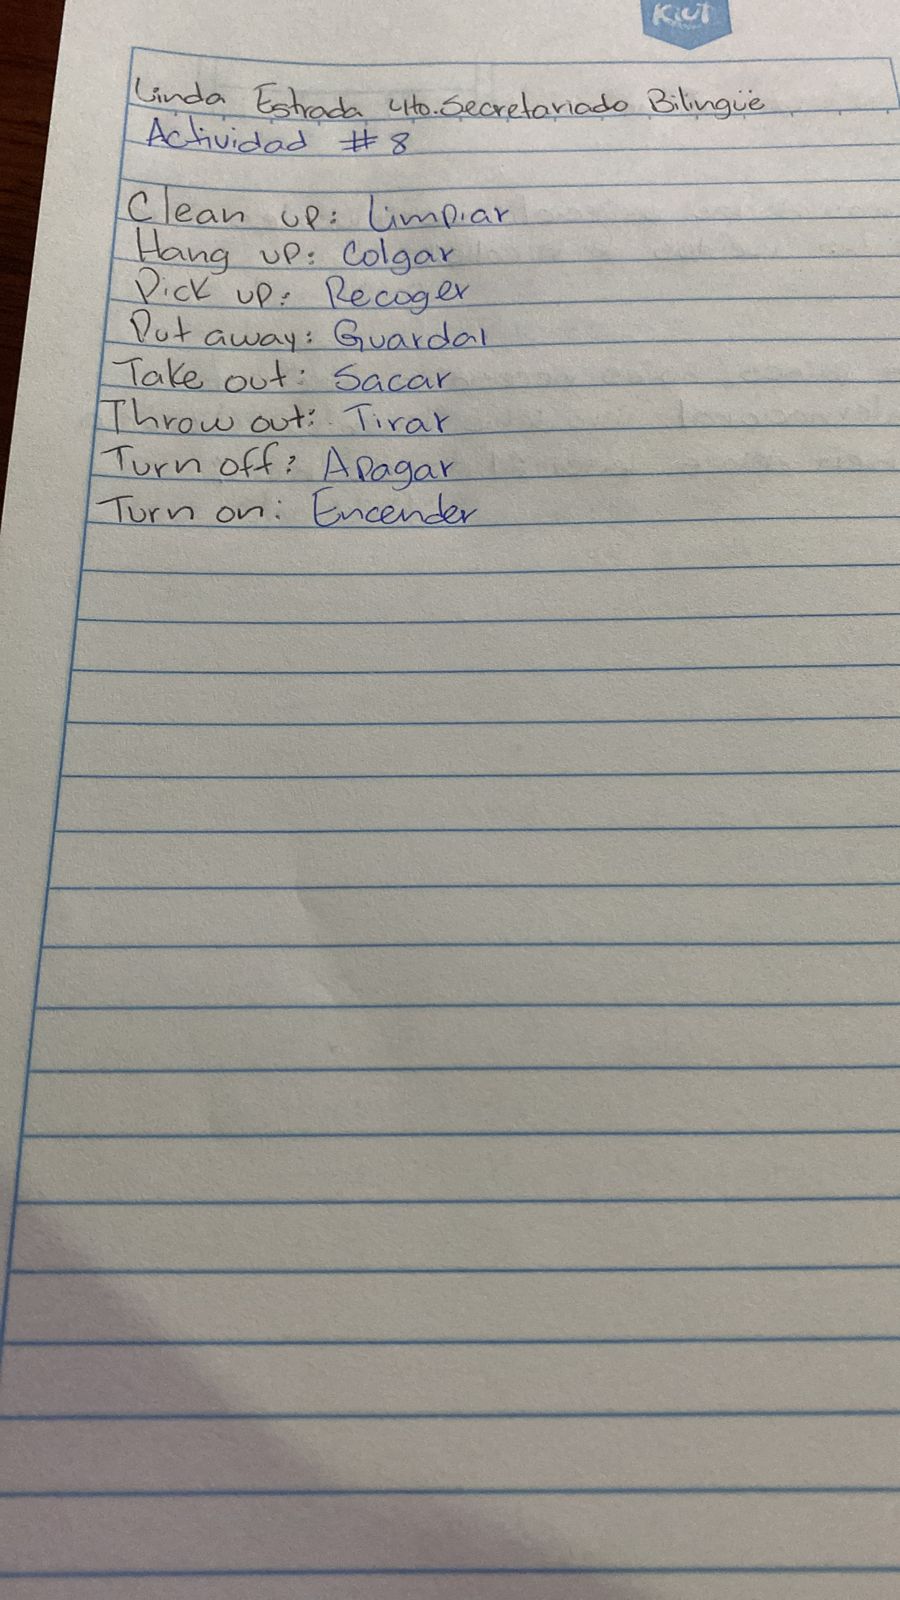 Kiut
Linda Estrada 4to. Secretariado Bilingüe
Actividad # 8
Clean up: Limpiar
Hang up: Colgar
Pick up: Recoger
Put away: Guardal
Take out: Sacar
Throw out: Tirar
Turn off: Apagar
Turn on: Encender